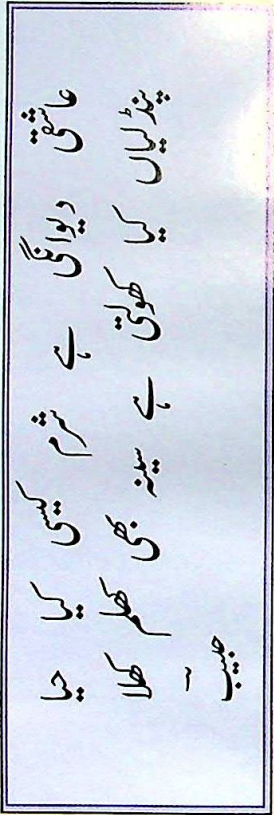 عاشقی دیوانگی ہے شرم کیسی کیا حیا
پنڈلیاں کیا کھولتی ہے سینہ بھی کھلم کھلا
۔ حبیب